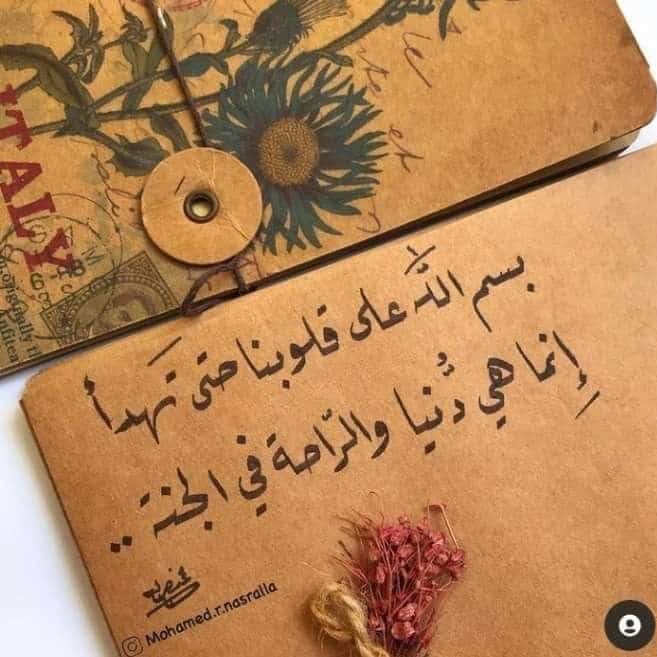 ITALY
بسم اللَّه على قلوبنا حتى تَهدأ
إنما هي دُنيا والرّاحة في الجنة ..
Mohamed.r.nasralla